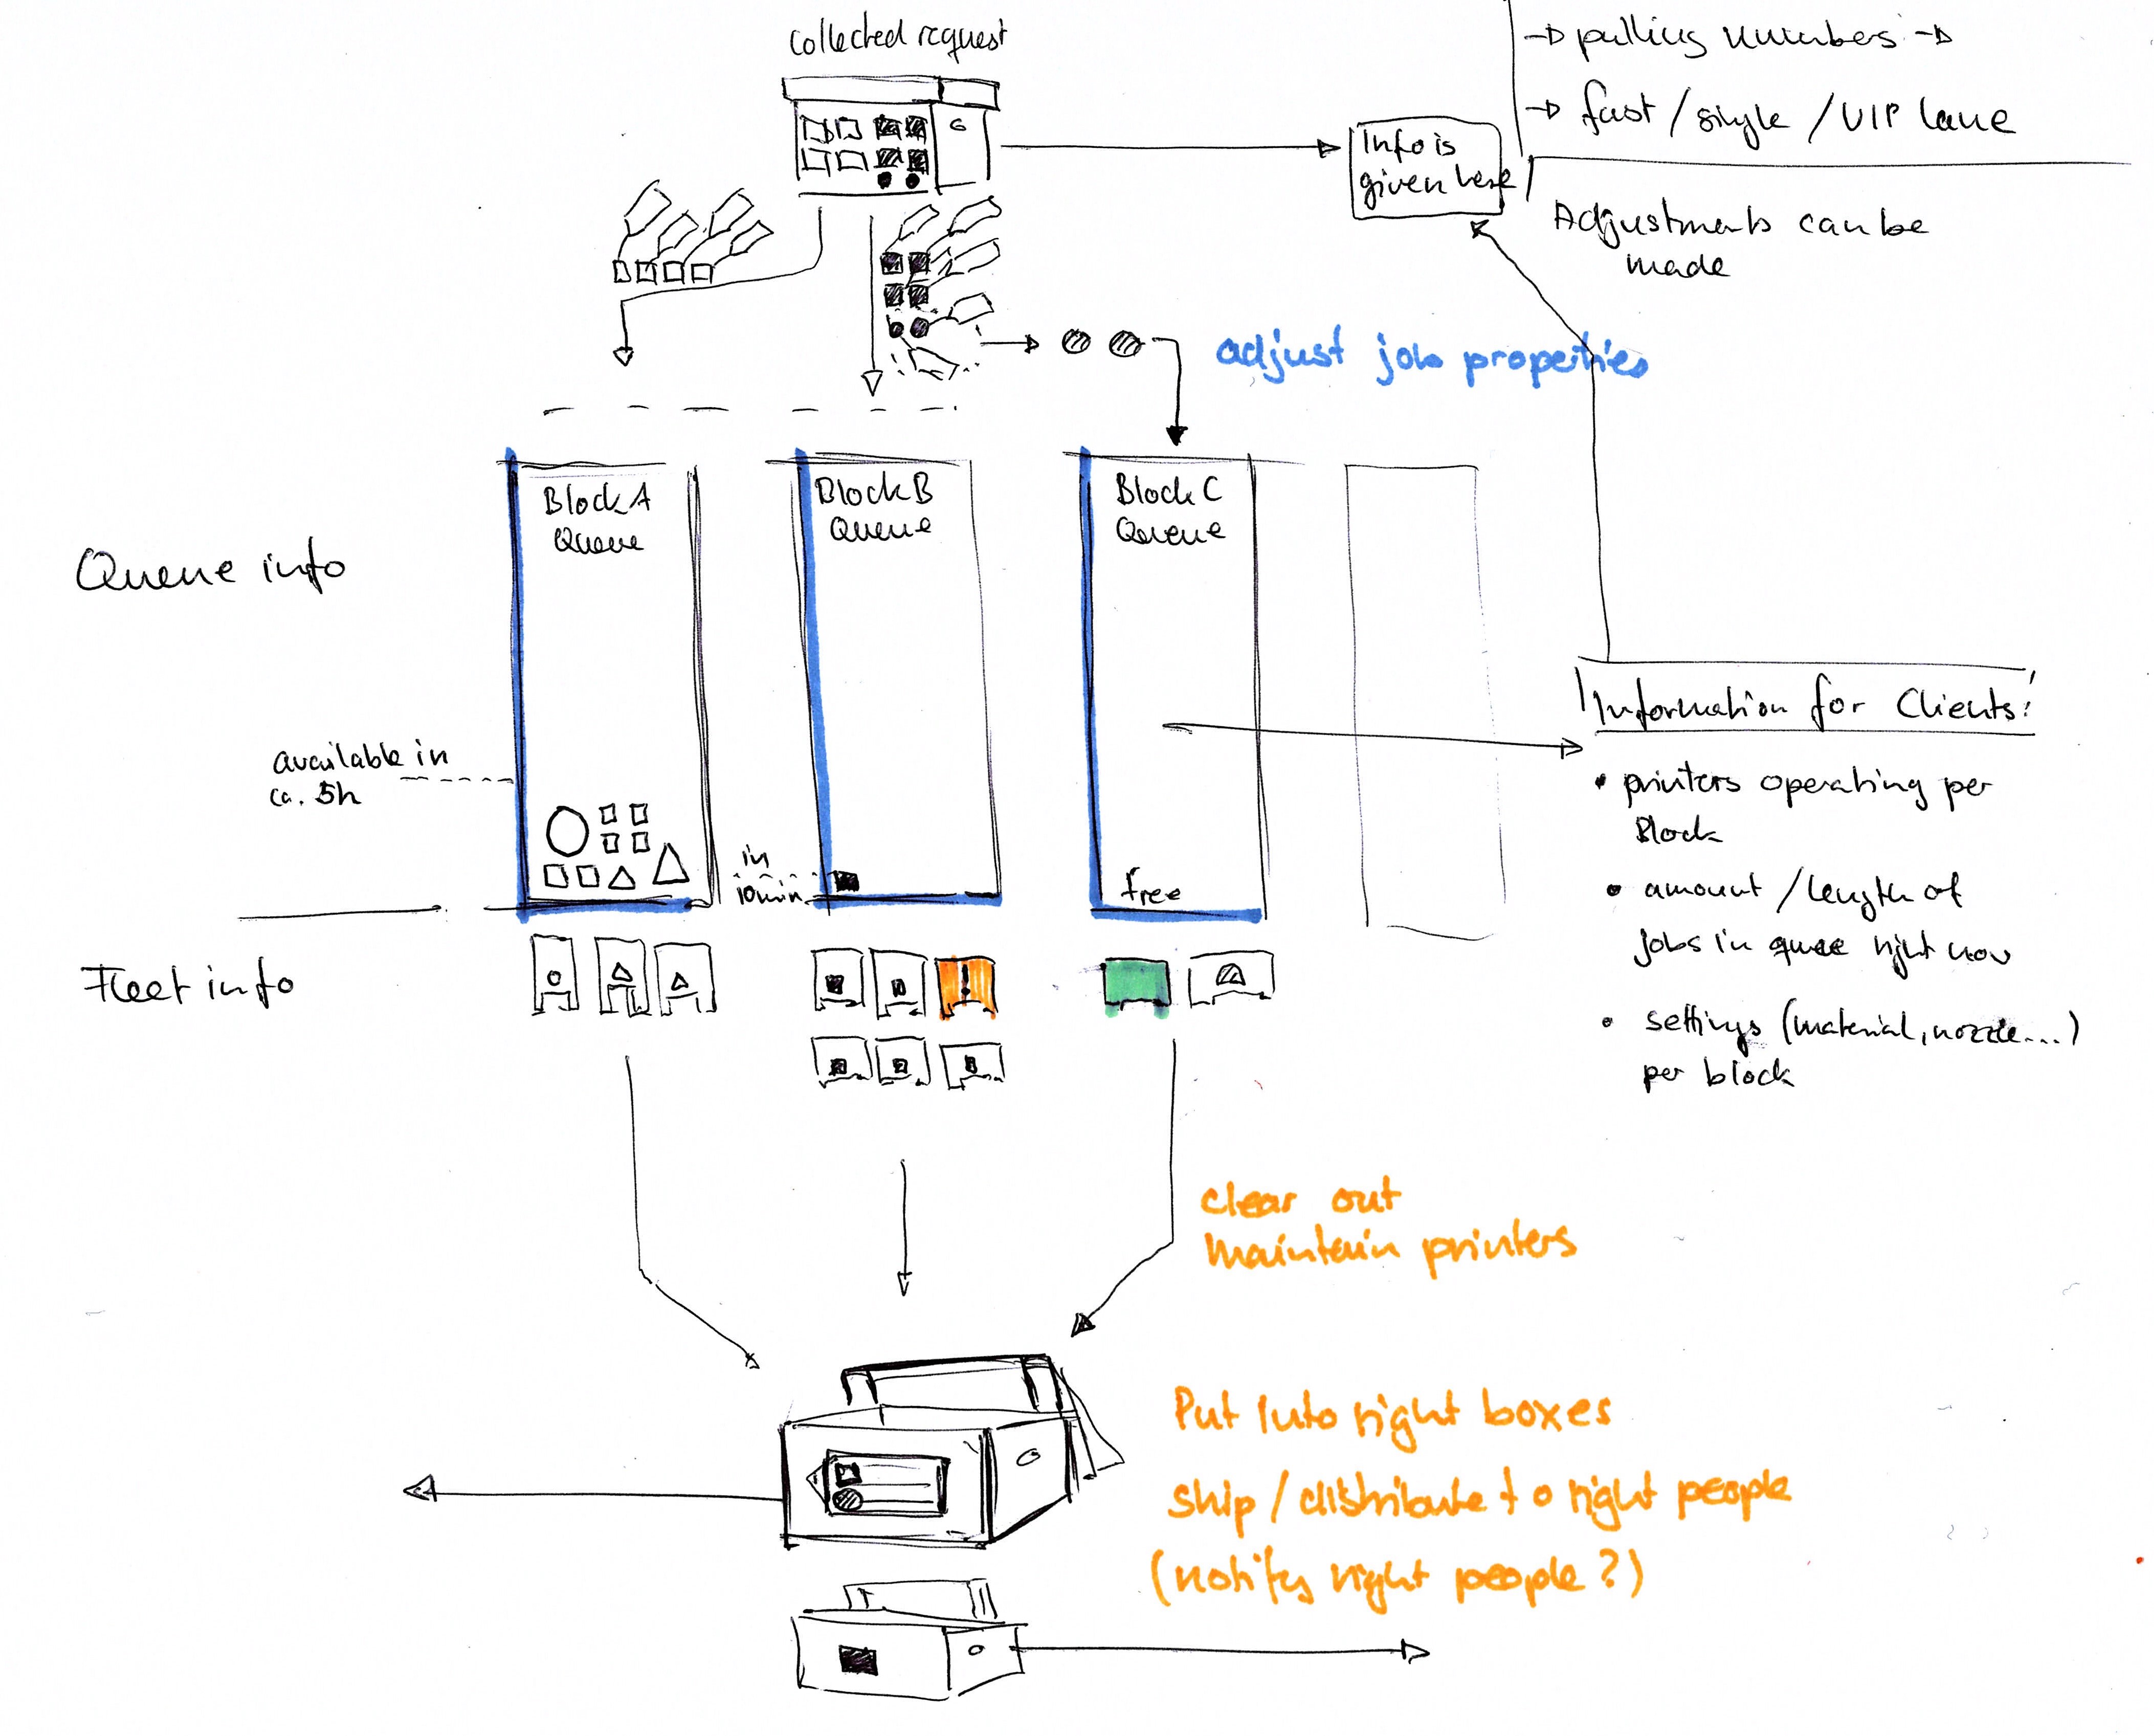 collected request
→ pulling numbers →
→ fast / single / VIP lane
Info is
given here
Adjustments can be
made
adjust job properties
Block A
Queue
Block B
Queue
Block C
Queue
Queue info
available in
ca. 5h
in
10min
free
Information for Clients:
• printers operating per
Block
• amount / length of
jobs in quee right now
• settings (material, nozzle...)
per block
Fleet info
clear out
maintain printers
Put into right boxes
ship / distribute to right people
(notify right people?)